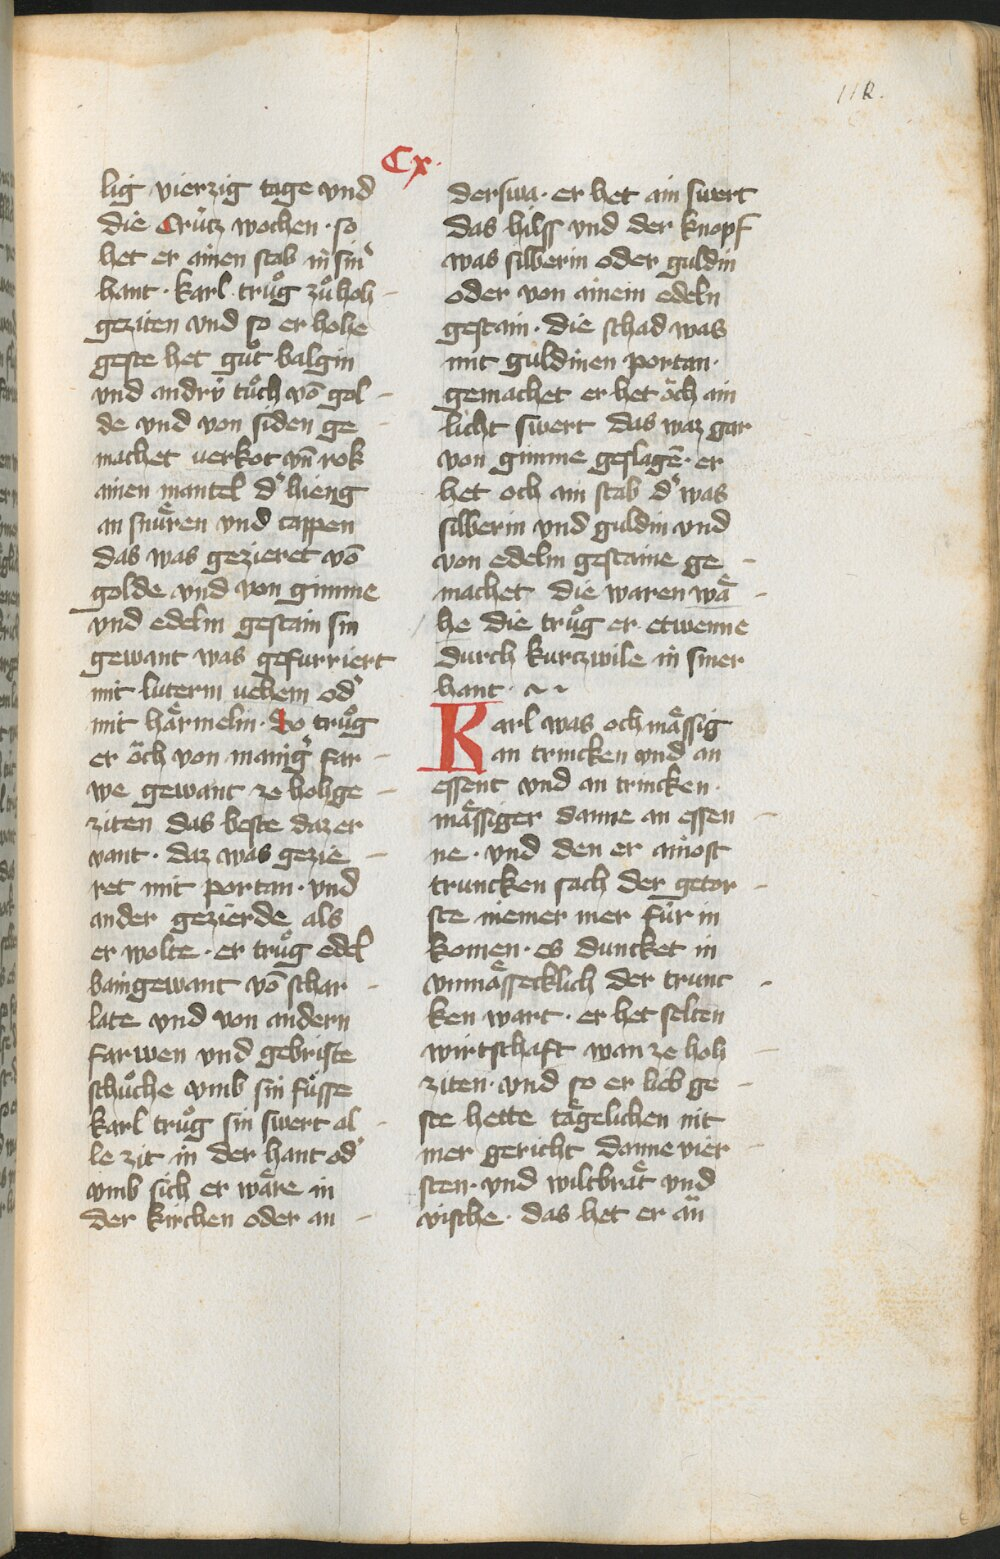 112.
Cx.
lig vierzig tage vnd
die Crútz wochen · so
het er ainen stab in sinˀ
hant · karl trůg zů hoh -
geziten vnd so er hohe
geste het gůt balgin
vnd andrv̓ tůch võ gol -
de vnd von siden ge -
machet verkot vñ rok
ainen mantel dˀ hieng
an snuͤren vnd tappen
das was gezieret võ
golde vnd von gimme
vnd edelm gestain sin
gewant was gefurriert
mit luterm vehem odˀ
mit haͤrmelin · Do trůg
er ǒch von manigˀ far -
we gewant ze hohge -
ziten das beste daz er
vant · daz was gezie -
ret mit portan · vnd
ander gezierde als
er wolte · er trůg edel
baingewant võ schar -
late vnd von andern
farwen vnd gebriste
schůche vmb sin fuͤsse
karl trůg sin swert al -
le zit in der hant odˀ
vmb sich er waͤre in
der kirchen oder an -
derswa · er het ain swert
das hilss vnd der knopf
was silberin oder guldin
oder von ainem edeln
gestain · die schad was
mit guldinen portan ·
gemachet er het ǒch ain
licht swert das waz gar
von gimme geslagē · er
het och ain stab dˀ was
silberin vnd guldin vnd
von edelm gestaine ge -
machet die waren waͤ -
he die trůg er etwenne
durch kurczwile in siner
hant · ~ ~
Karl was och maͤssig
an trincken vnd an
essent vnd an trincken ·
maͤssiger danne an essen -
ne · vnd den er ainost
truncken sach der getor -
ste niemer mer fúr in
komen · es duncket in
vnmaͤssecklich der trunc -
ken wart · er het selten
wirtschaft wan ze hoh -
ziten · vnd so er lieb ge -
ste hette taͤgelichen nit
mer gericht danne vier -
sten · vnd wiltbraͤt vnd
vische · das het er an